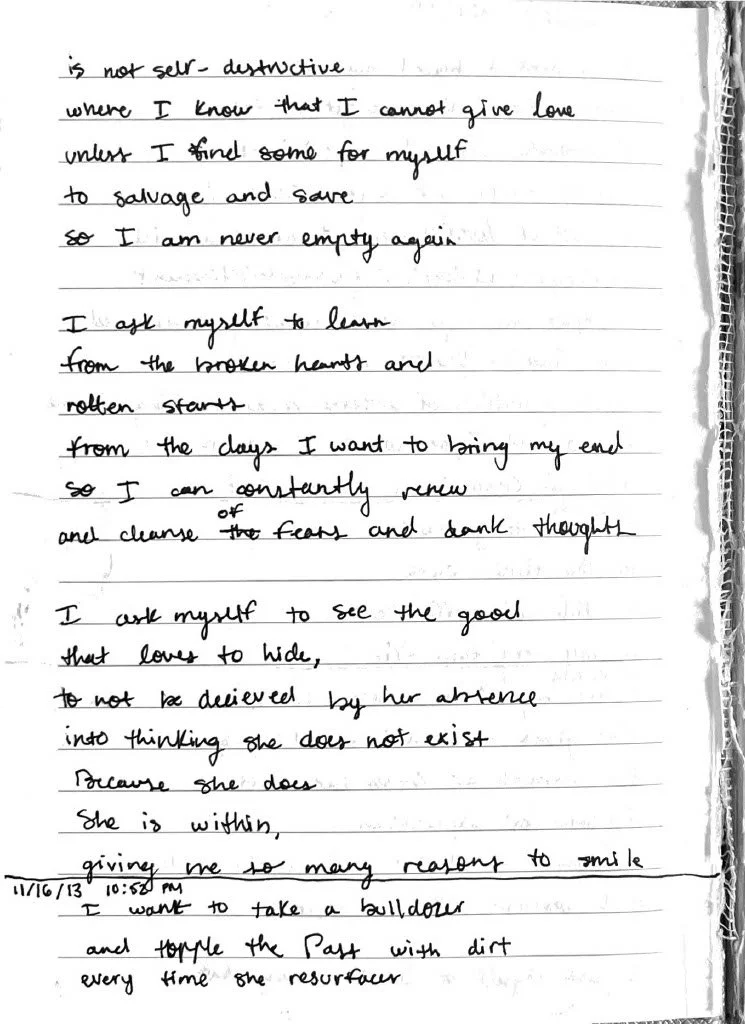 is not self-destructive
where I know that I cannot give love
unless I find some for myself
to salvage and save
so I am never empty again
I ask myself to learn
from the broken hearts and
rotten starts
from the days I want to bring my end
so I can constantly renew
of
and cleanse the fears and dank thoughts
I ask myself to see the good
that loves to hide,
to not be decieved by her absence
into thinking she does not exist
Because she does
She is within,
giving me so many reasons to smile
11/16/13 10:52 PM
I want to take a bulldozer
and topple the Past with dirt
every time she resurfaces